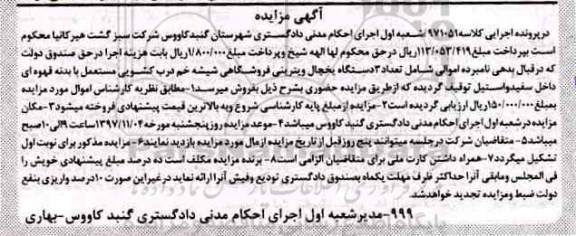 آگهی مزایده
درپرونده اجرایی کلاسه ۹۷۱۰۵۱ شعبه اول اجرای احکام مدنی دادگستری شهرستان گنبدکاووس شرکت سبز گشت هیرکانیا محکوم
است بپرداخت مبلغ ۱۱۳/۰۵۳/۴۱۹ ریال درحق محکوم لها الهه شیخ وپرداخت مبلغ ۱/۸۰۰/۰۰۰ ریال بابت هزینه اجرا درحق صندوق دولت
که درقبال بدهی نامبرده اموالی شامل تعداد ۳دستگاه یخچال ویترینی فروشگاهی شیشه خم درب کشویی مستعمل با بدنه قهوه ای
داخل سفیدواستیل توقیف گردیده که ازطریق مزایده حضوری بشرح ذیل بفروش میرسد۱-مطابق نظریه کارشناس اموال مورد مزایده
بمبلغ ۱۵۰/۰۰۰/۰۰۰ ریال ارزیابی گردیده است۲-مزایده از مبلغ پایه کارشناسی شروع وبه بالاترین قیمت پیشنهادی فروخته میشود۳-مکان
مزایده درشعبه اول اجرای احکام مدنی دادگستری گنبد کاووس میباشد۴-موعد مزایده روزپنجشنبه مورخه ۱۳۹۷/۱۱/۰۴ساعت ۹الی۱۰صبح
میباشد۵-متقاضیان شرکت درجلسه میتوانند پنج روزقبل از تاریخ مزایده ازمال مورد مزایده بازدید نمایند۶-مزایده مذکور برای نوبت اول
تشکیل میگردد۷-همراه داشتن کارت ملی برای متقاضیان الزامی است۸- برنده مزایده مکلف است ده درصد مبلغ پیشنهادی خویش را
فی المجلس ومابقی آنرا حداکثر ظرف مهلت یکماه بصندوق دادگستری تودیع وفیش آنراارائه نماید درغیراین صورت ۱۰درصد واریزی بنفع
دولت ضبط ومزایده تجدید خواهدشد.
۹۹۹-مدیرشعبه اول اجرای احکام مدنی دادگستری گنبد کاووس-بهاری